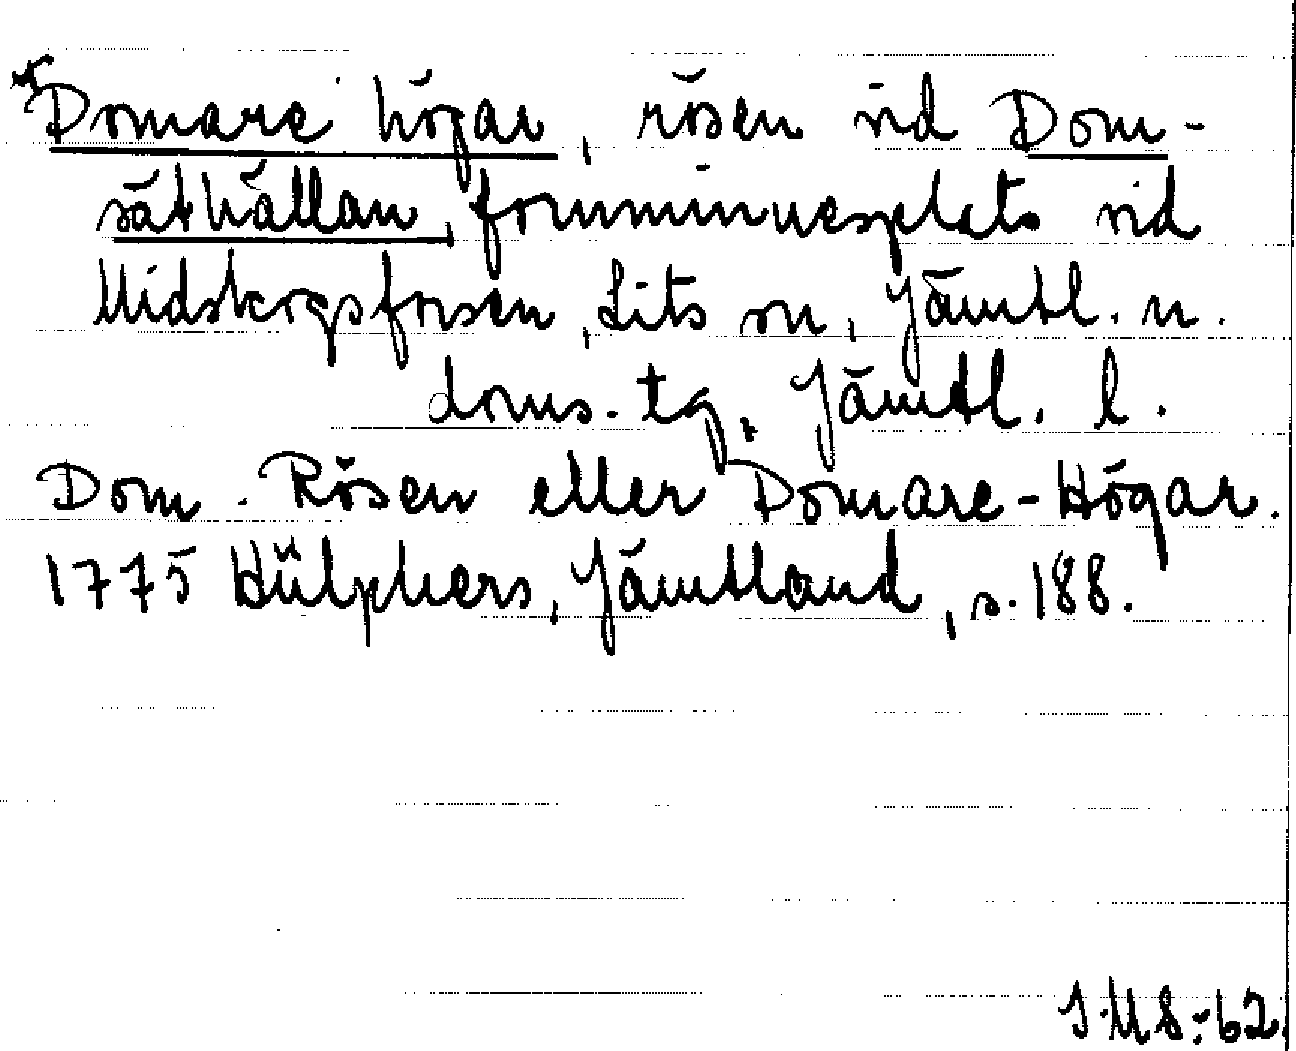 *Domare högar, rösen vid Dom-
säthällan, fornminnesplats vid
Midskogsforsen, Lits sn, Jämtl. n.
doms. tg, Jämtl. l.
Dom. Rösen eller Domare-Högar.
1775 Hülphers, Jämtland, s. 188.
IMS:62